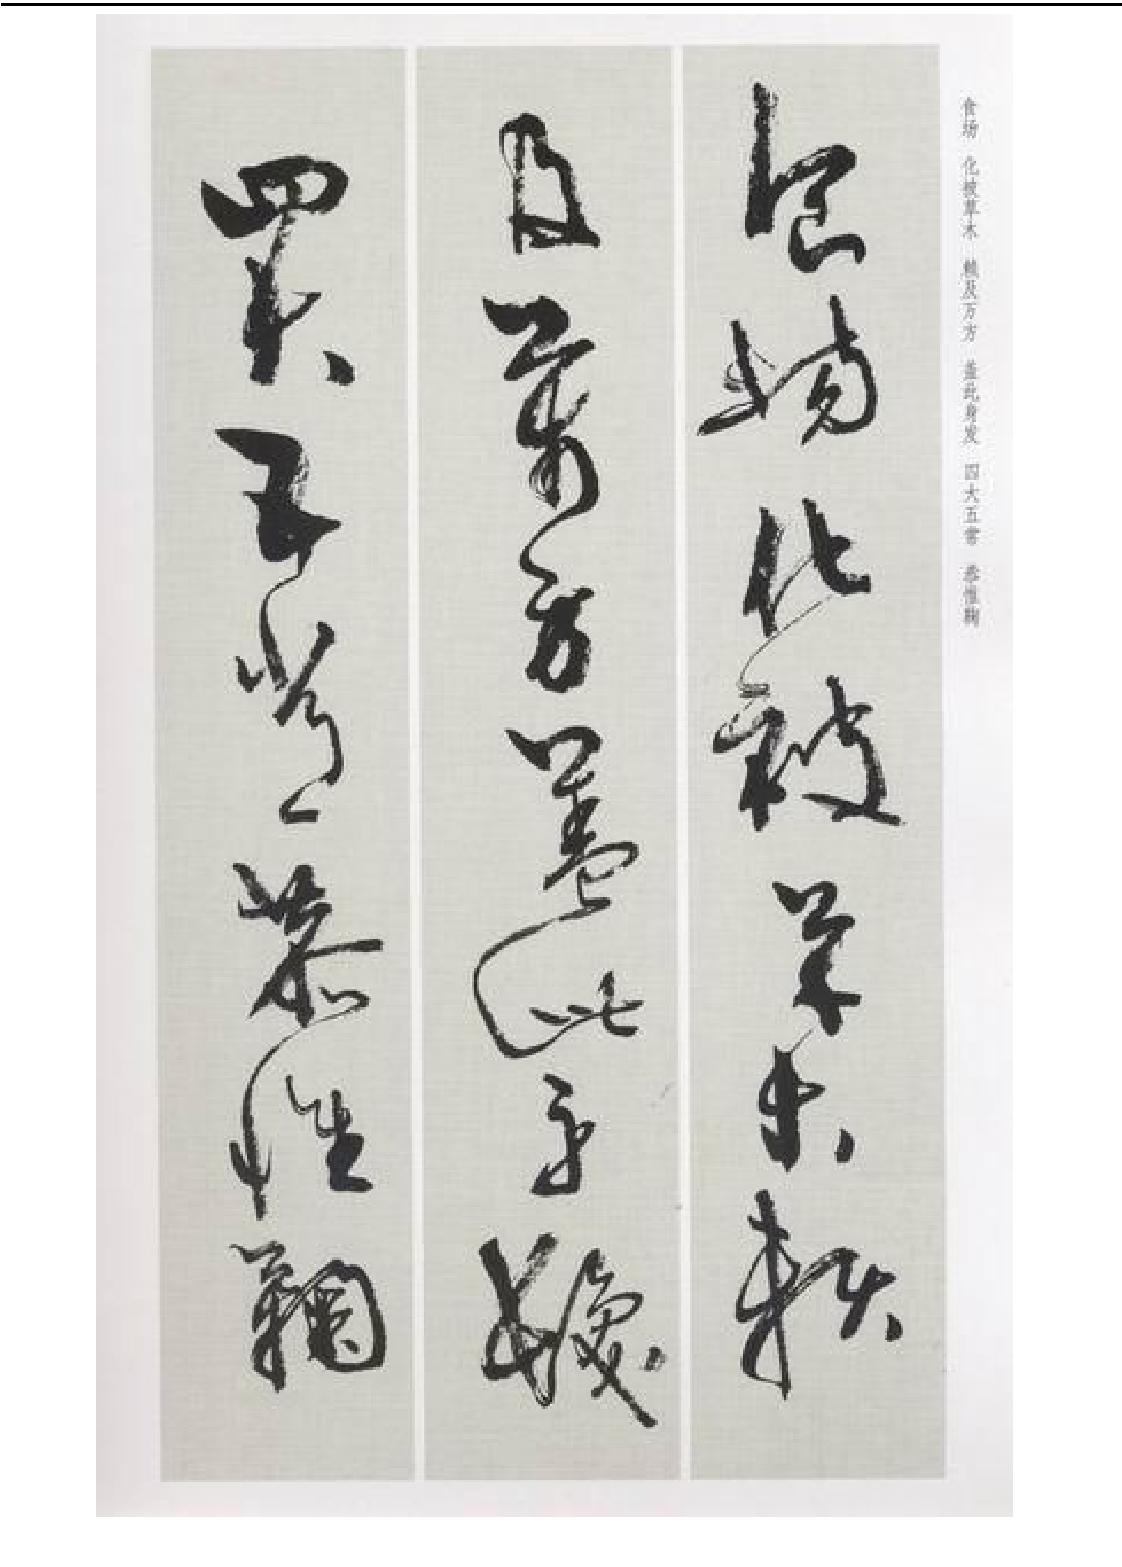 食场 化被草木 赖及万方 盖此身发 四大五常 恭惟鞠
食場化被草木賴
及萬方蓋此身髮
四大五常恭惟鞠